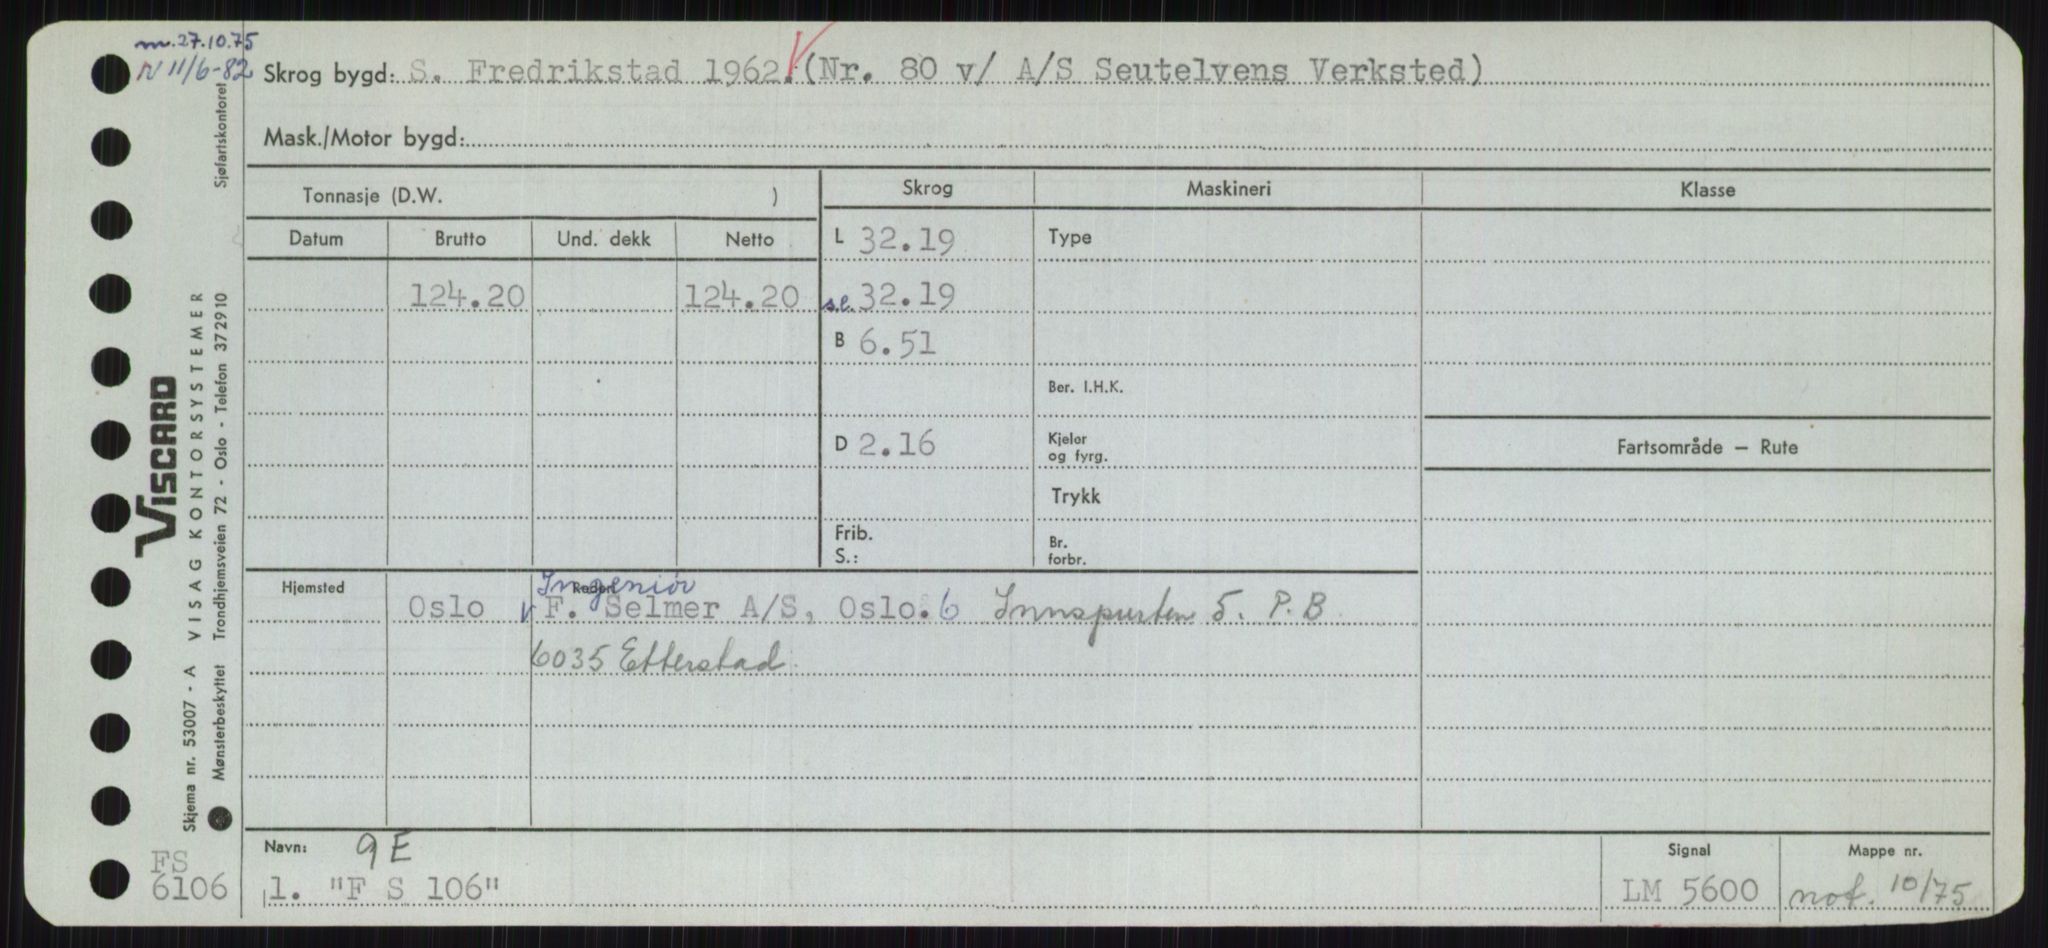 m. 27.10.75
N 11/6-82
Skrog bygd: S. Fredrikstad 1962. (Nr. 80 v/ A/S Seutelvens Verksted)
Mask./Motor bygd:
Tonnasje (D.W. )
Skrog
Maskineri
Klasse
Datum
Brutto
Und. dekk
Netto
L 32.19
Type
124.20
124.20
s.l. 32.19
B 6.51
Ber. I.H.K.
D 2.16
Kjeler
og fyrg.
Fartsområde — Rute
Trykk
Frib.
S.:
Br.
forbr.
Hjemsted
Rederi
Ingeniør
Oslo
V F. Selmer A/S, Oslo. 6 Innspurten 5. P.B
6035 Etterstad.
Navn: 9E
1. "F S 106"
Signal
LM 5600
Mappe nr.
not. 10/75
FS
6106
VISCARD
Skjema nr. 53007 - A VISAG KONTORSYSTEMER
Mønsterbeskyttet Trondhjemsveien 72 - Oslo - Telefon 372910
Sjøfartskontoret